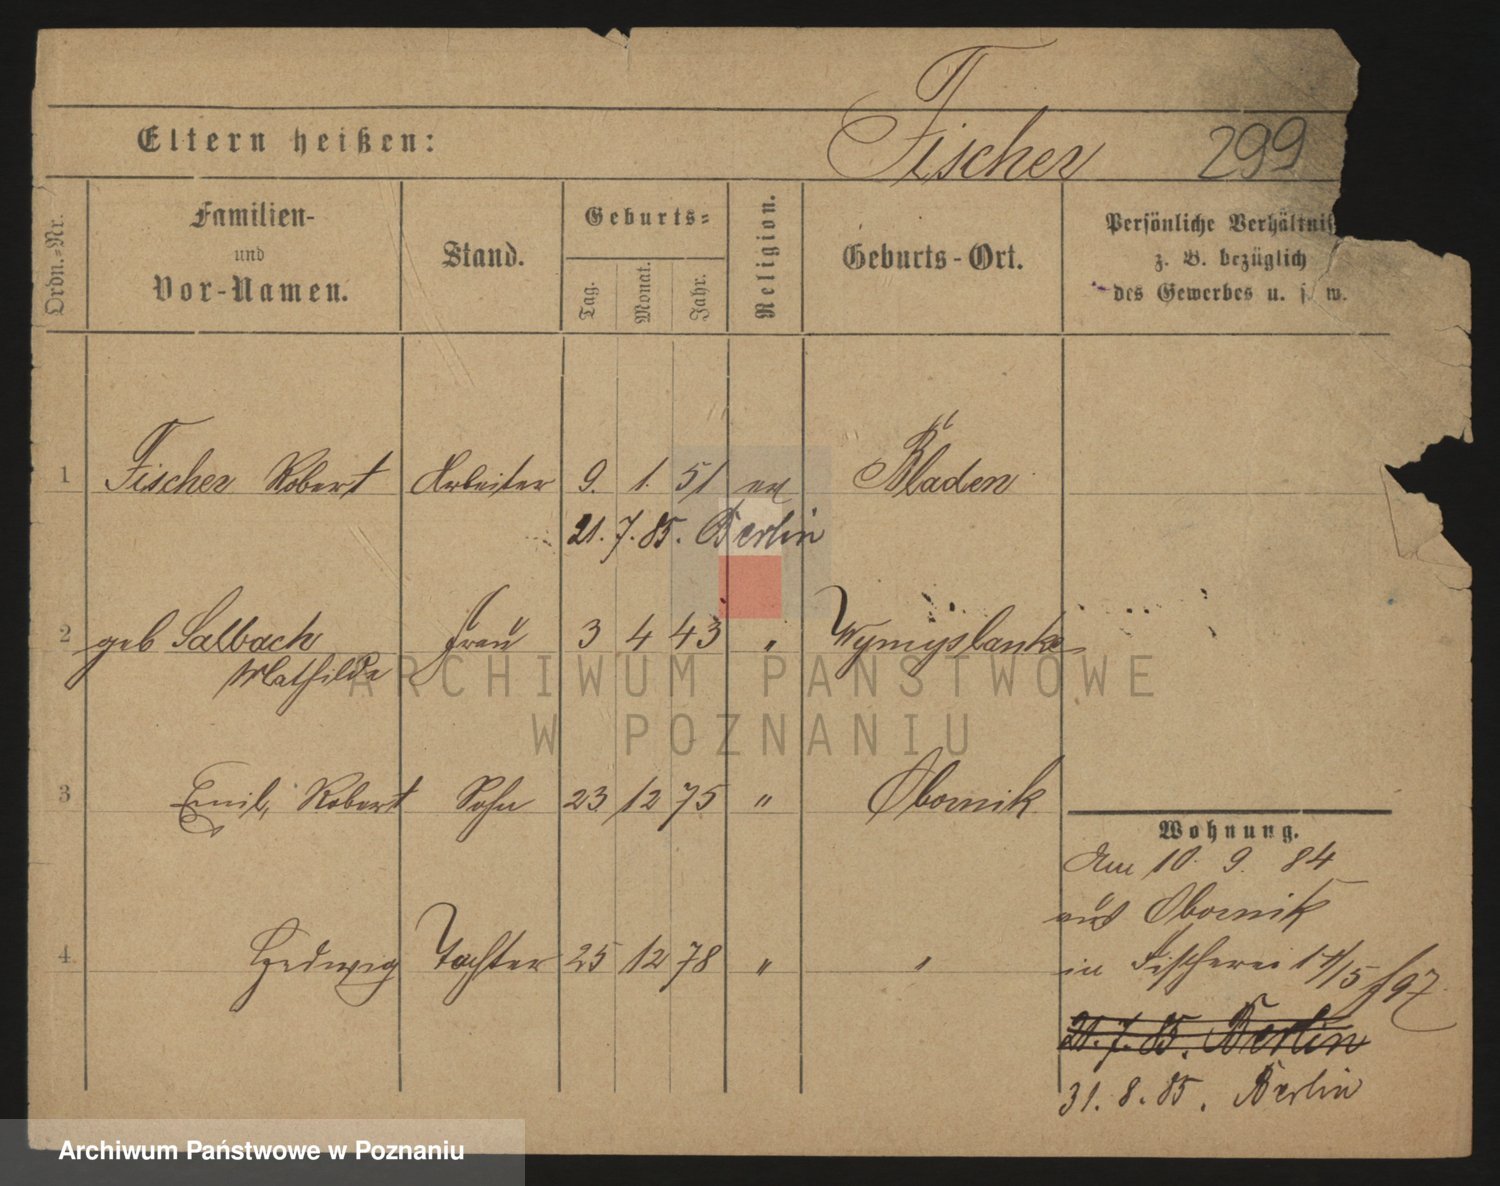 Eltern heißen: Fischer 299
Ordn.-Nr. Familien- und Vor-Namen. Stand. Geburts= Tag. Monat. Jahr. Religion. Geburts-Ort. Persönliche Verhältnis z. B. bezüglich des Gewerbes u. s. w.
1 Fischer Robert Arbeiter 9. 1. 51 ev Bladen
21. 7. 85. Berlin
2 geb Salbach Frau 3 4 43 " Wymyslanke
Mathilde
3 Emil, Robert Sohn 23 12 75 " Obornik
Wohnung.
Am 10. 9. 84
aus Obornik
4 Hedwig Tochter 25 12 78 " "
in Fischerei
21. 7. 85. Berlin
31. 8. 85. Berlin
ARCHIWUM PAŃSTWOWE
W POZNANIU
Archiwum Państwowe w Poznaniu